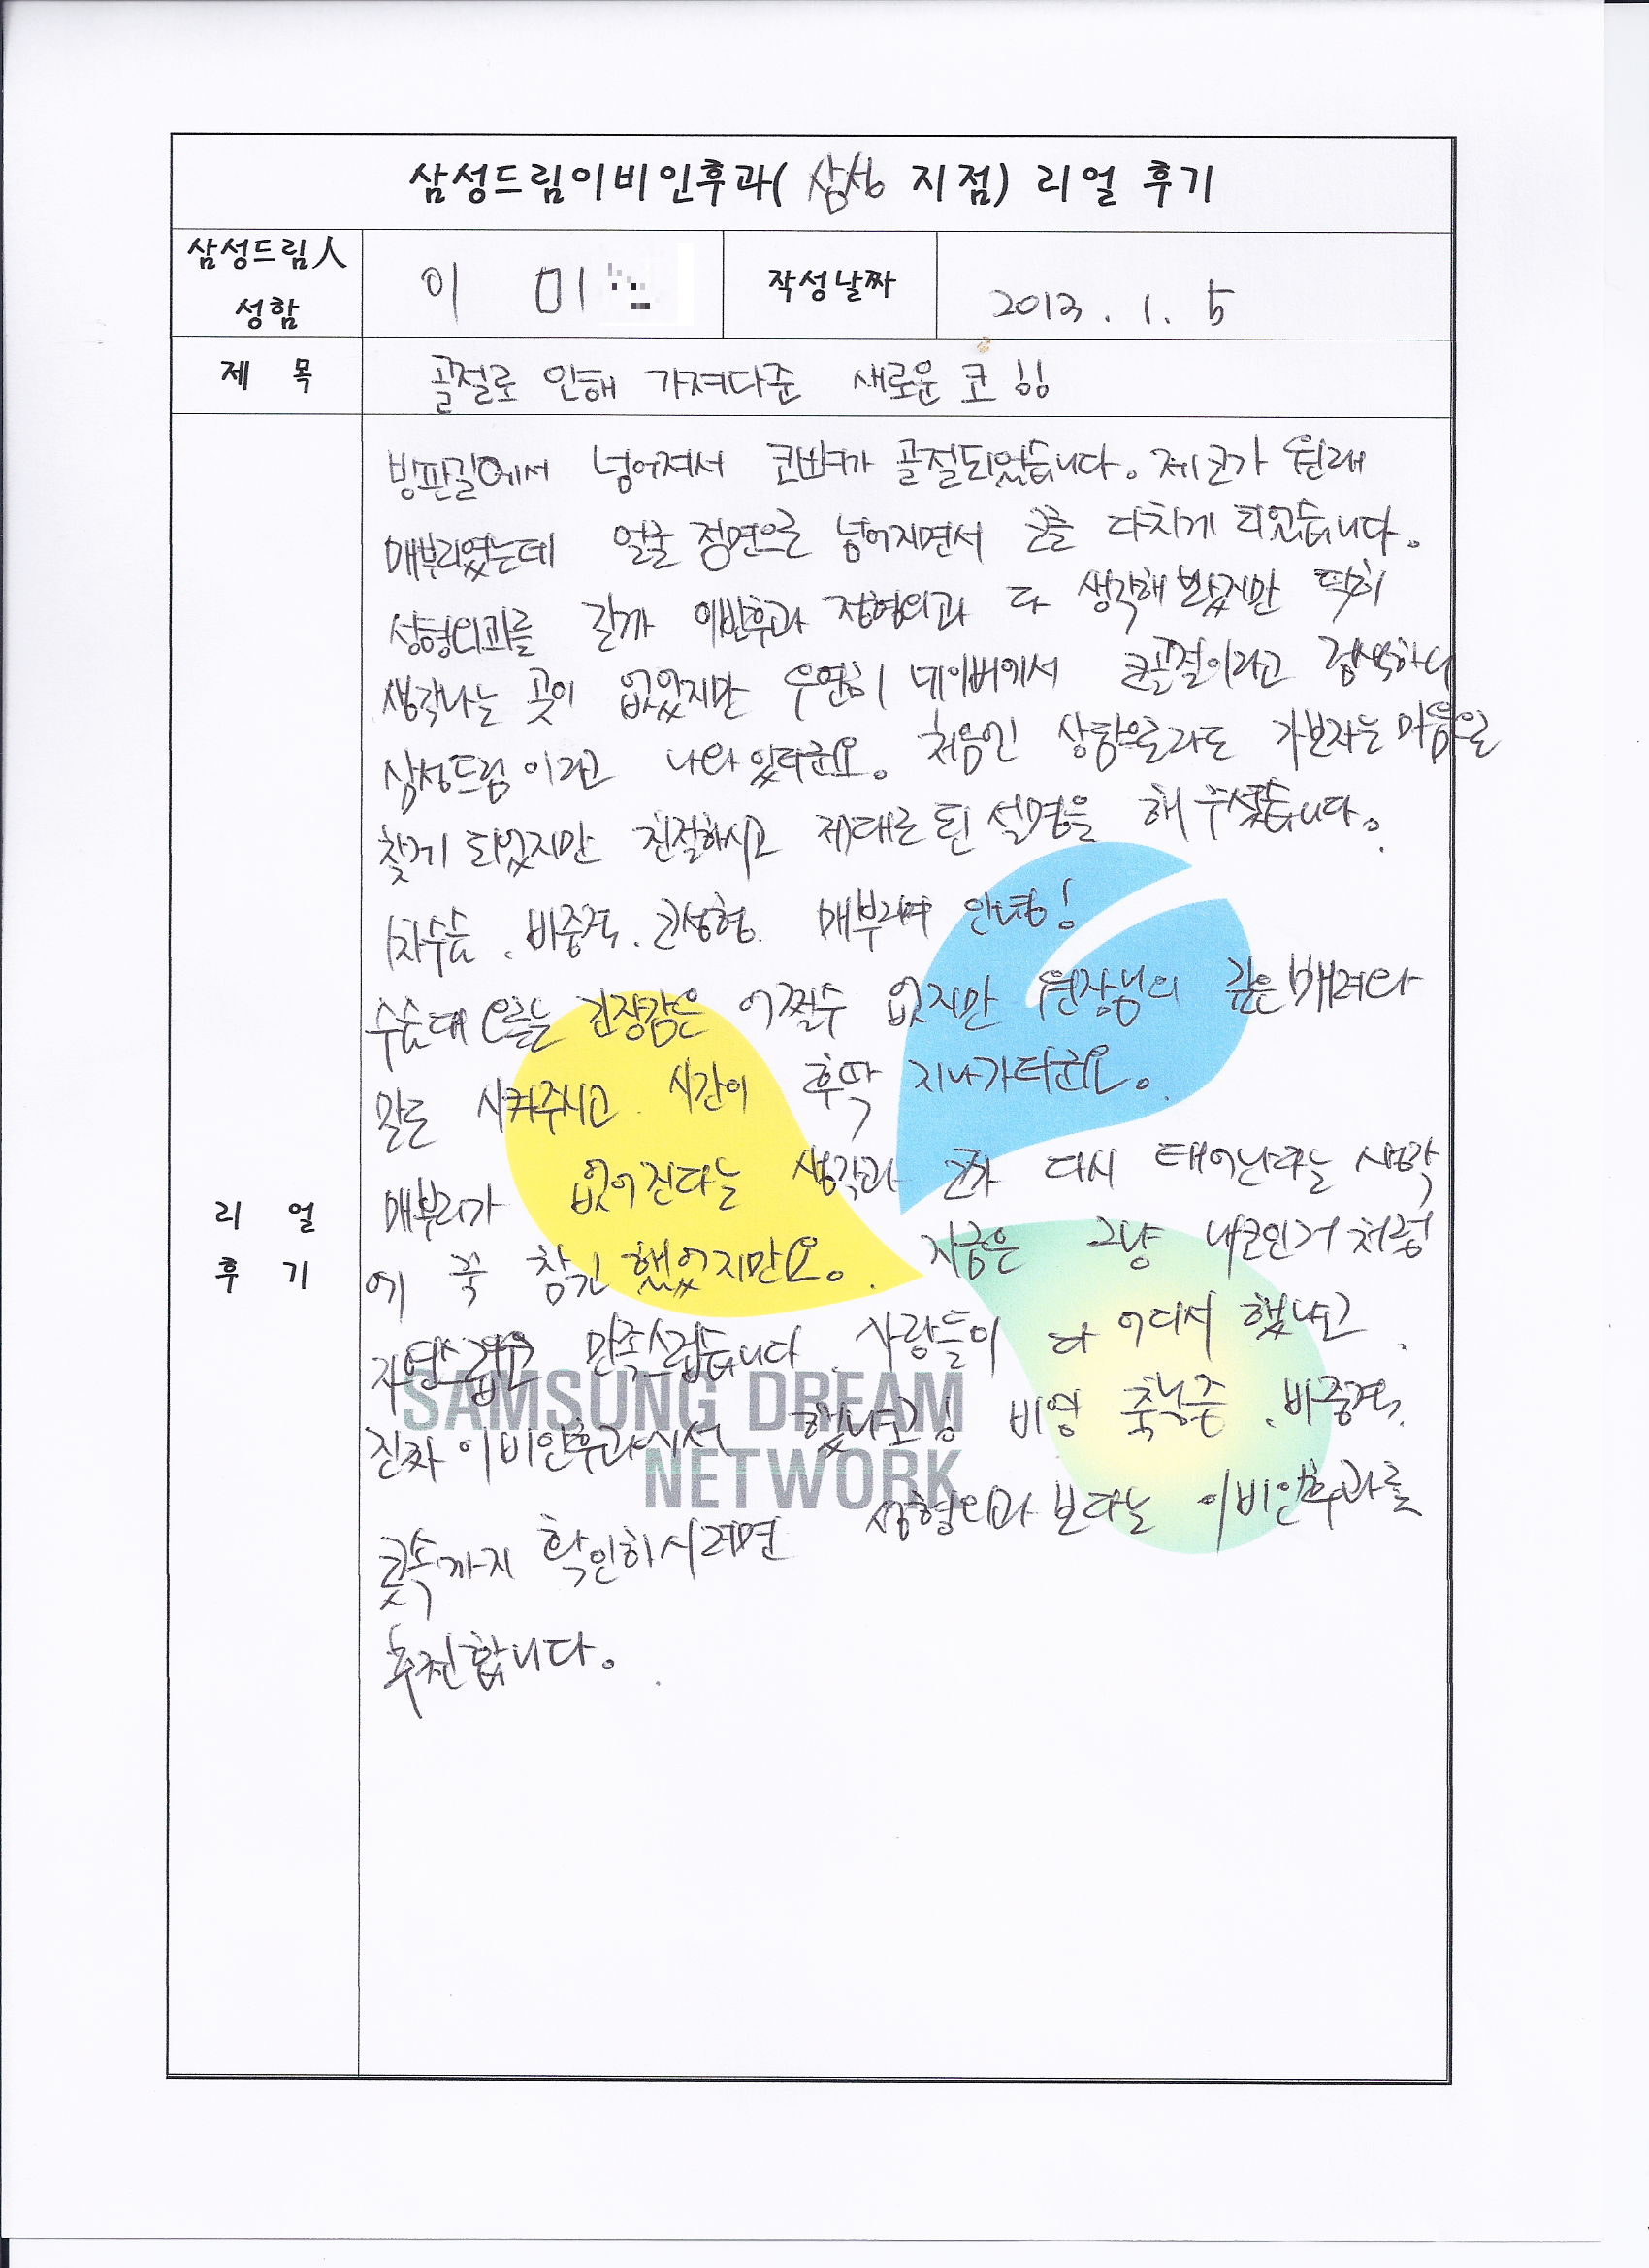 삼성드림이비인후과( 삼성 지점) 리얼 후기
삼성드림人
성함
이 미
작성날짜
2013. 1. 5
제 목
골절로 인해 가져다준 새로운 코 !!
빙판길에서 넘어져서 코뼈가 골절되었습니다. 제코가 원래
매부리였는데 얼굴 정면으로 넘어지면서 코를 다치게 되었습니다.
성형외과를 갈까 이빈후과 정형외과 다 생각해 봤지만 딱히
생각나는 곳이 없었지만 우연히 네이버에서 코골절이라고 검색하니
삼성드림이라고 나와 있더군요. 처음인 상황으로라도 가보자는 마음으로
찾게 되었지만 친절하시고 제대로 된 설명을 해 주셨습니다.
1차수술. 비중격. 코성형. 매부리여 안녕!
수술대 오르는 긴장감은 어쩔수 없지만 원장님의 깊은 배려와
말도 시켜주시고 시간이 후딱 지나가더군요.
매부리가 없어진다는 생각과 코가 다시 태어난다는 생각
에 꾹 참긴 했었지만요. 지금은 그냥 내코인거 처럼
자연스럽고 만족스럽습니다 사람들이 다 어디서 했냐고
진짜 이비인후과에서 했냐고!! 비염 축농증. 비중격.
콧속까지 확인하시려면 성형외과 보다는 이비인후과를
추천합니다.
리 얼
후 기
SAMSUNG DREAM
NETWORK